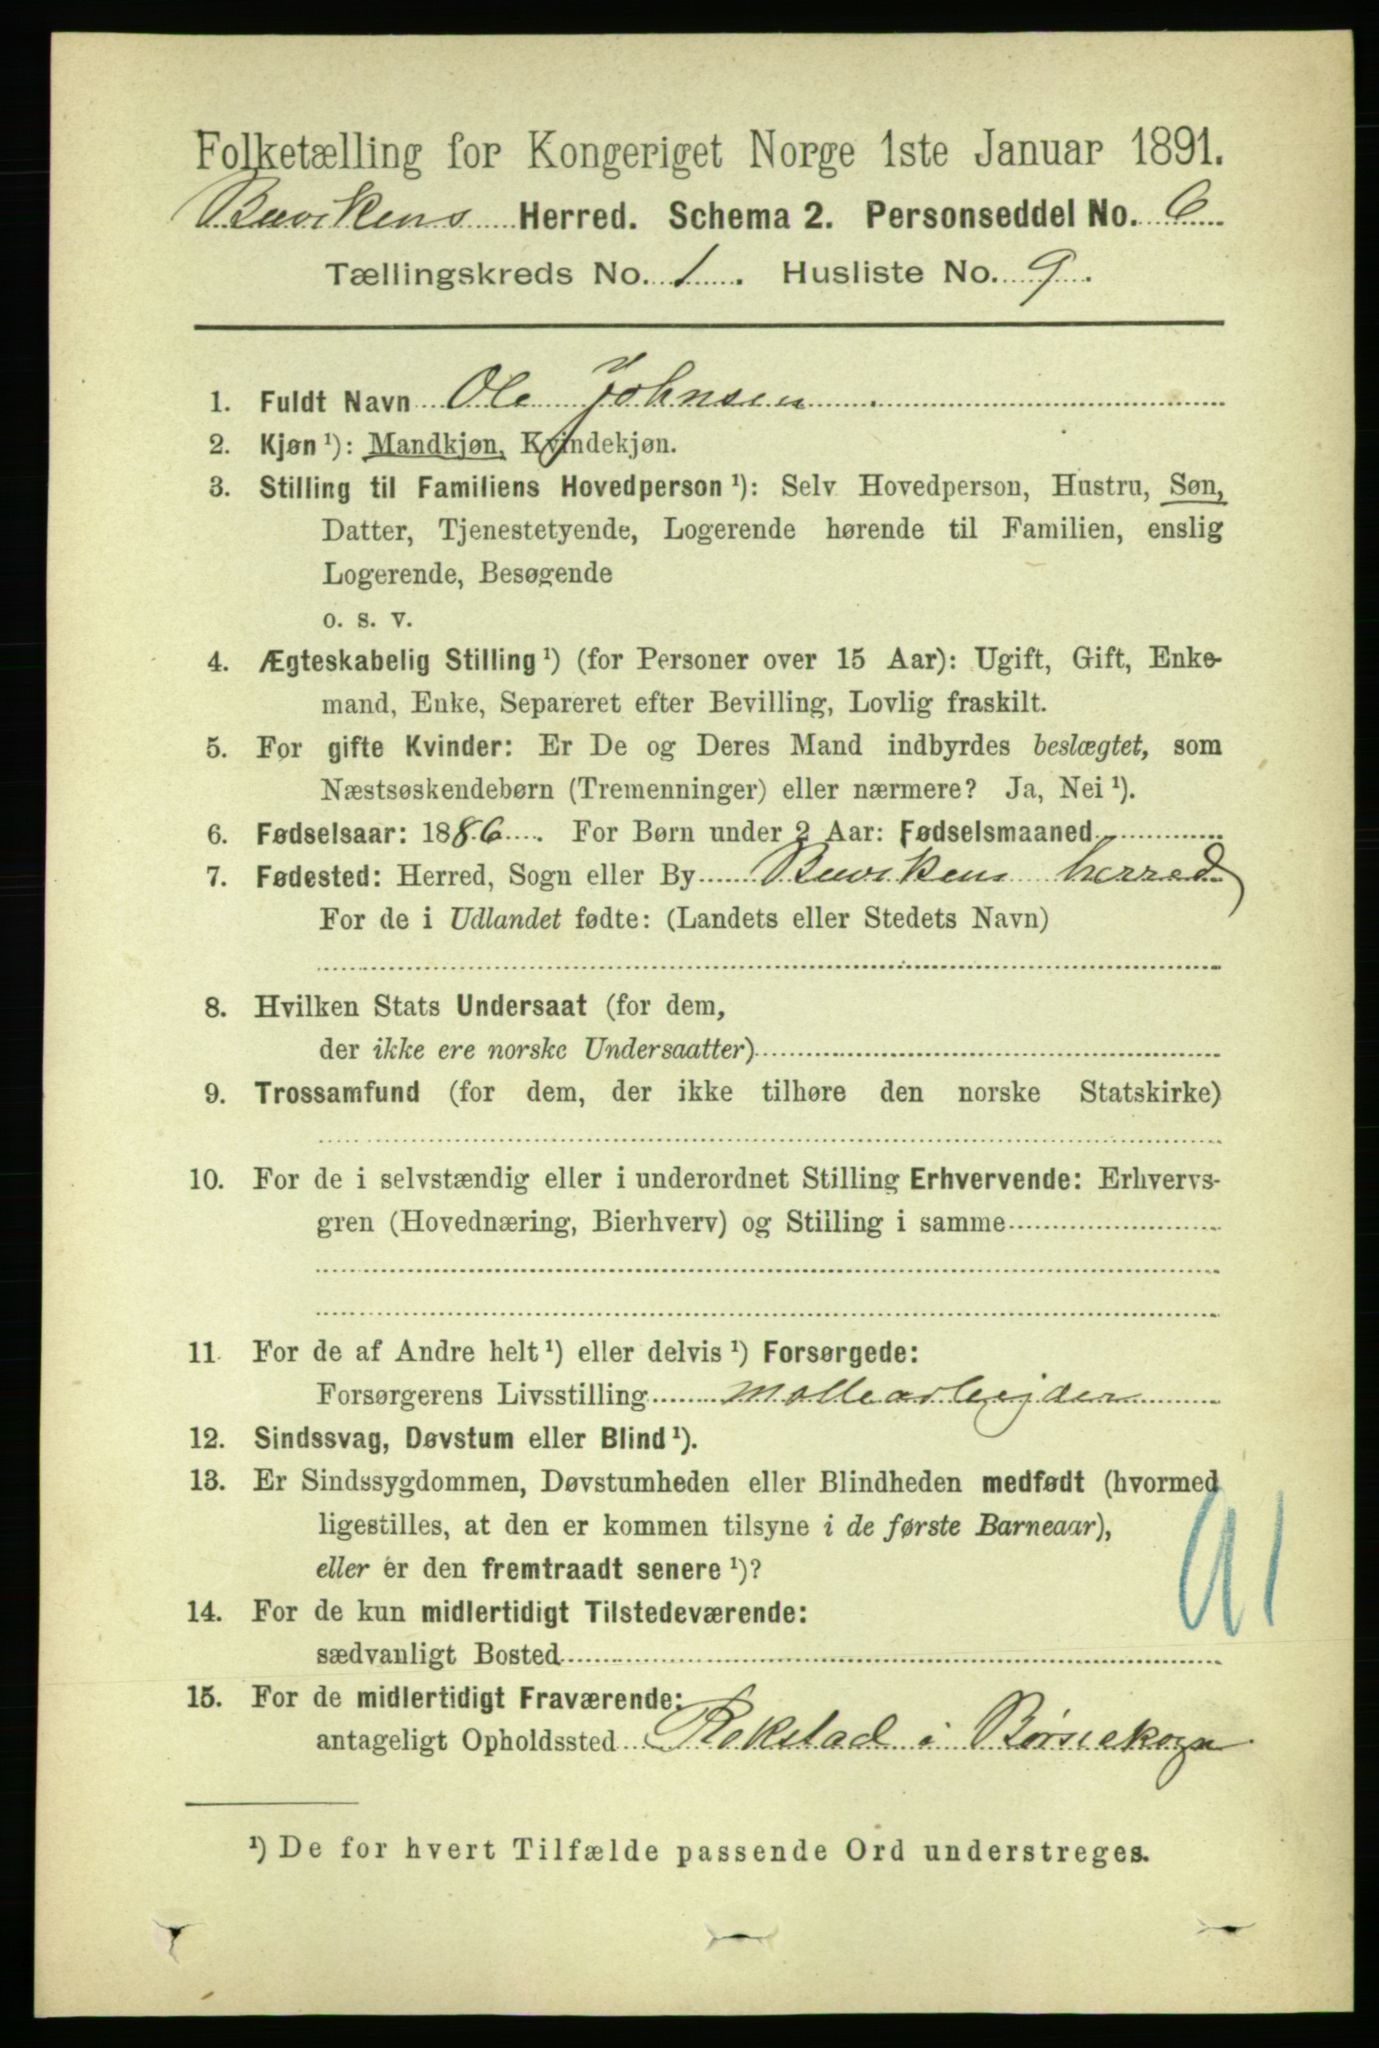 Folketælling for Kongeriget Norge 1ste Januar 1891.
Buvikens Herred. Schema 2. Personseddel No. 6
Tællingskreds No. 1. Husliste No. 9.
1. Fuldt Navn Ole Johnsen
2. Kjøn ¹): Mandkjøn, Kvindekjøn.
3. Stilling til Familiens Hovedperson ¹): Selv Hovedperson, Hustru, Søn,
Datter, Tjenestetyende, Logerende hørende til Familien, enslig
Logerende, Besøgende
o. s. v.
4. Ægteskabelig Stilling ¹) (for Personer over 15 Aar): Ugift, Gift, Enke-
mand, Enke, Separeret efter Bevilling, Lovlig fraskilt.
5. For gifte Kvinder: Er De og Deres Mand indbyrdes beslægtet, som
Næstsøskendebørn (Tremenninger) eller nærmere? Ja, Nei ¹).
6. Fødselsaar: 1886. For Børn under 2 Aar: Fødselsmaaned
7. Fødested: Herred, Sogn eller By Buvikens herred
For de i Udlandet fødte: (Landets eller Stedets Navn)
8. Hvilken Stats Undersaat (for dem,
der ikke ere norske Undersaatter)
9. Trossamfund (for dem, der ikke tilhøre den norske Statskirke)
10. For de i selvstændig eller i underordnet Stilling Erhvervende: Erhvervs-
gren (Hovednæring, Bierhverv) og Stilling i samme
11. For de af Andre helt ¹) eller delvis ¹) Forsørgede:
Forsørgerens Livsstilling Møllearbejder
12. Sindssvag, Døvstum eller Blind ¹).
13. Er Sindssygdommen, Døvstumheden eller Blindheden medfødt (hvormed
ligestilles, at den er kommen tilsyne i de første Barneaar),
eller er den fremtraadt senere ¹)?
14. For de kun midlertidigt Tilstedeværende:
sædvanligt Bosted
15. For de midlertidigt Fraværende:
antageligt Opholdssted Rekstad i Børseskogn
¹) De for hvert Tilfælde passende Ord understreges.
91